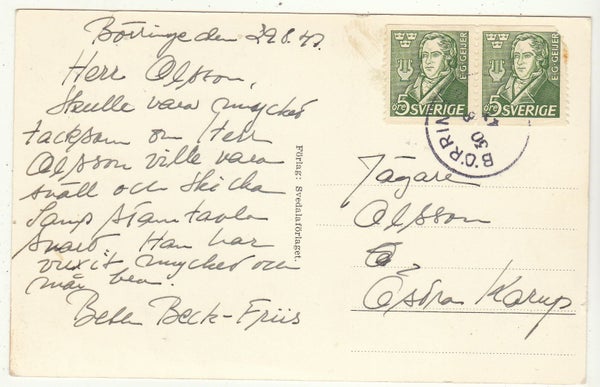 Börringe den 29.8.47.
Herr Olsson,
Skulle vara mycket
tacksam om Herr
Olsson ville vara
snäll och skicka
Samps stamtavla
snart. Han har
vuxit mycket och
mår bra.
Beck-Friis
Förlag: Svedalaförlaget.
5 öre SVERIGE
E·G·GEIJER
5 öre SVERIGE
E·G·GEIJER
BÖRRIN
30 8
Jägare
Olsson
Östra Karup